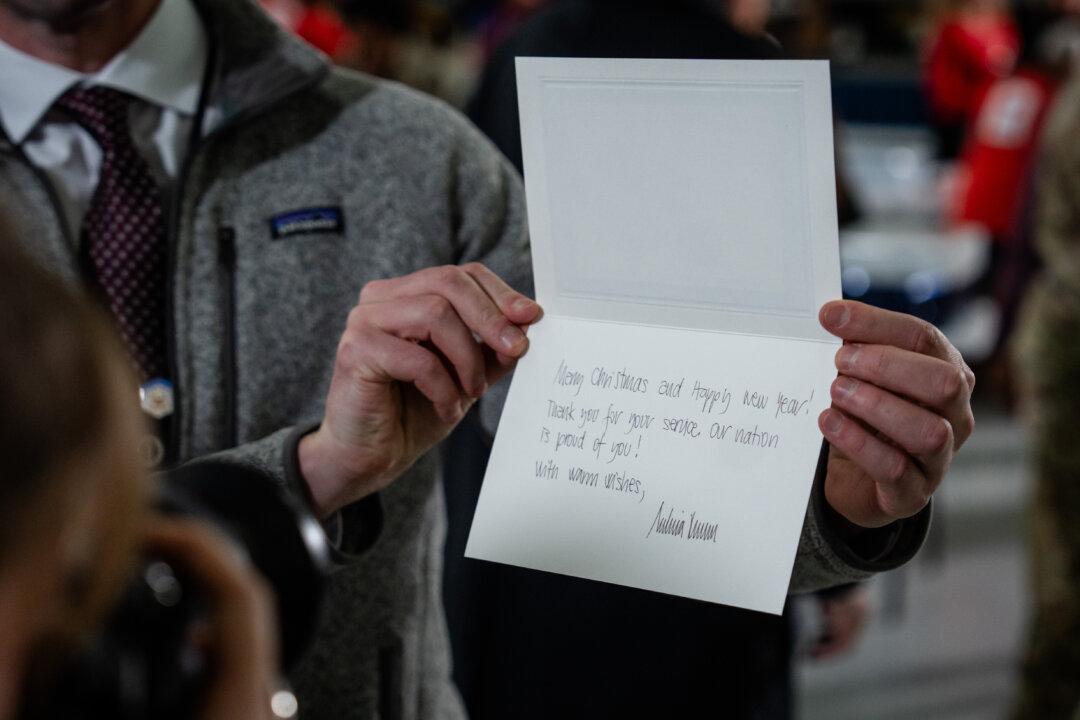 Merry Christmas and Happy New Year!
Thank you for your service, our nation
is proud of you!
with warm wishes,